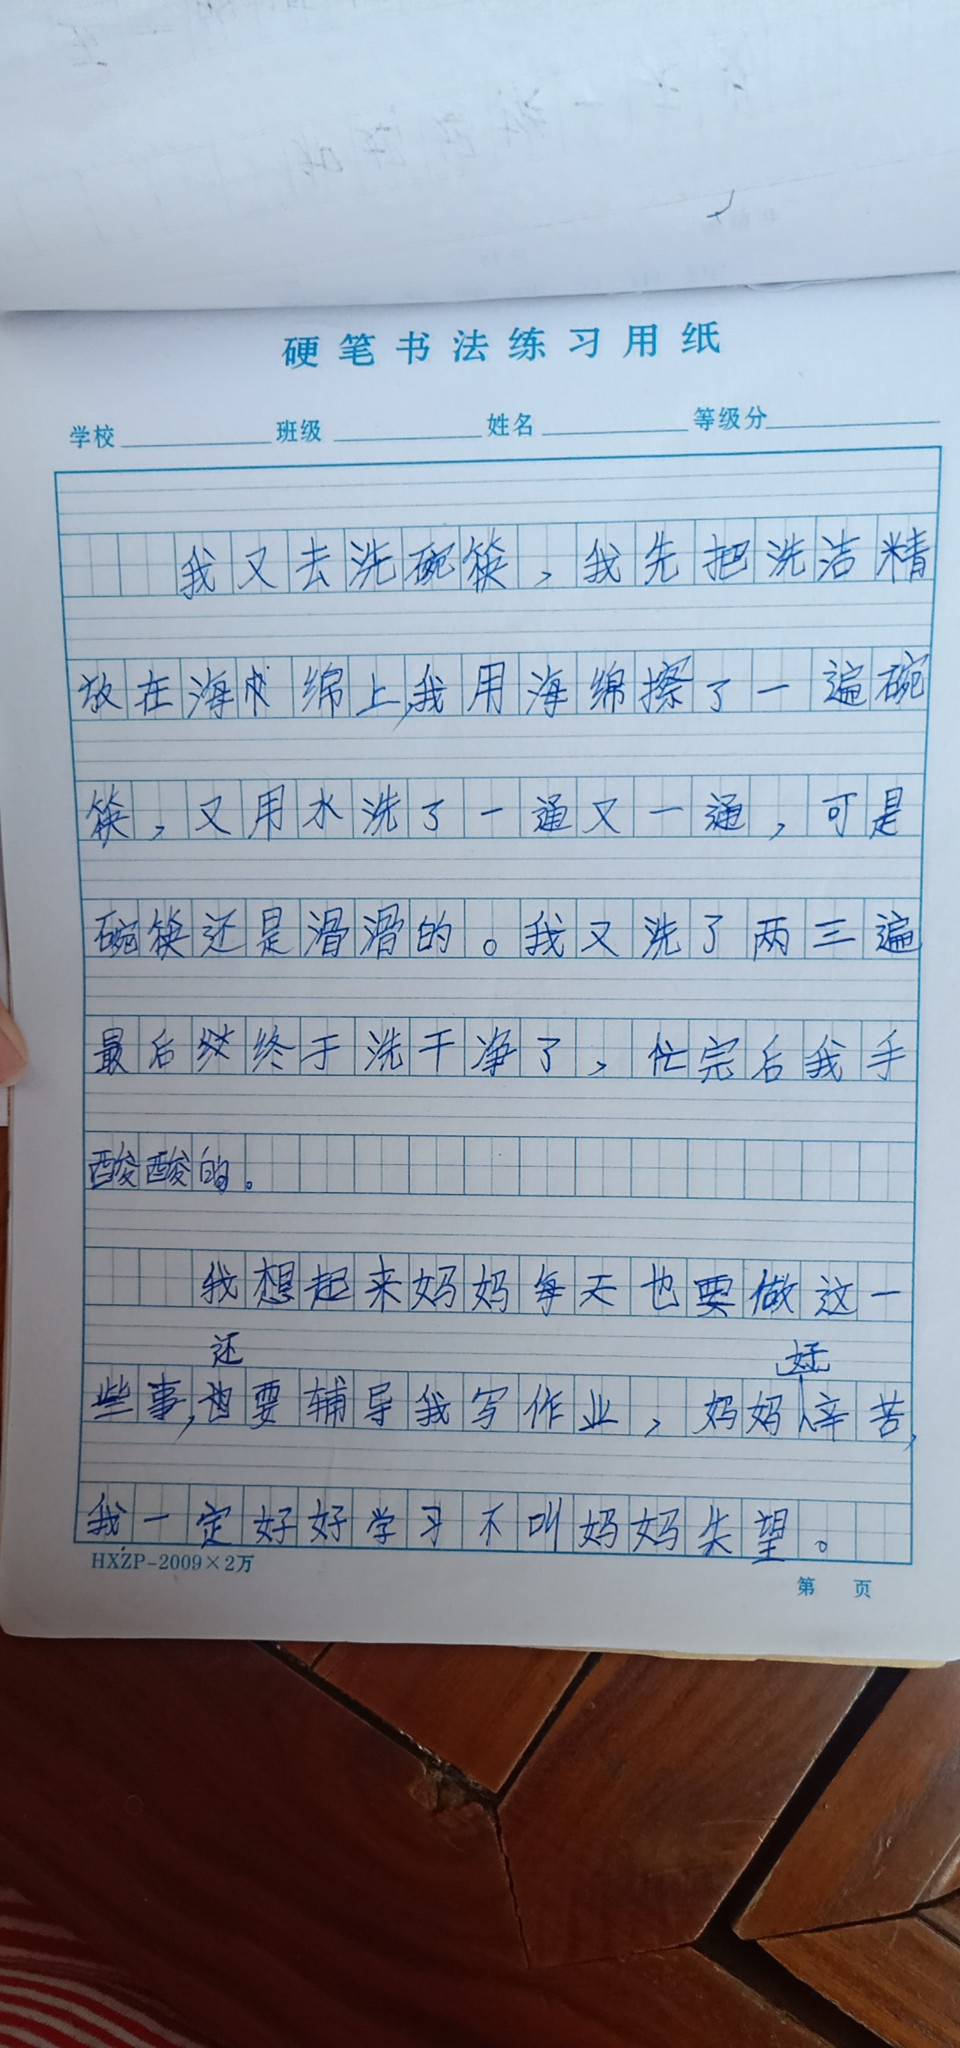 硬笔书法练习用纸
学校 班级 姓名 等级分
我又去洗碗筷，我先把洗洁精
放在海绵上，我用海绵擦了一遍碗
筷，又用水洗了一通又一通，可是
碗筷还是滑滑的。我又洗了两三遍
最后终于洗干净了，忙完后我手
酸酸的。
我想起来妈妈每天也要做这一
还 好
些事，也要辅导我写作业，妈妈辛苦，
我一定好好学习不叫妈妈失望。
HXZP-2009×2万
第 页